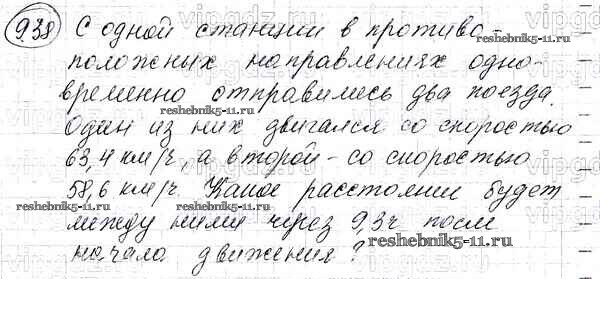 938 С одной станции в противо-
положных направлениях одно-
временно отправились два поезда.
Один из них двигался со скоростью
63,4 км/ч, а второй - со скоростью
58,6 км/ч. Какое расстояние будет
между ними через 9,3ч после
начала движения?
reshebnik5-11.ru
reshebnik5-11.ru
reshebnik5-11.ru
reshebnik5-11.ru